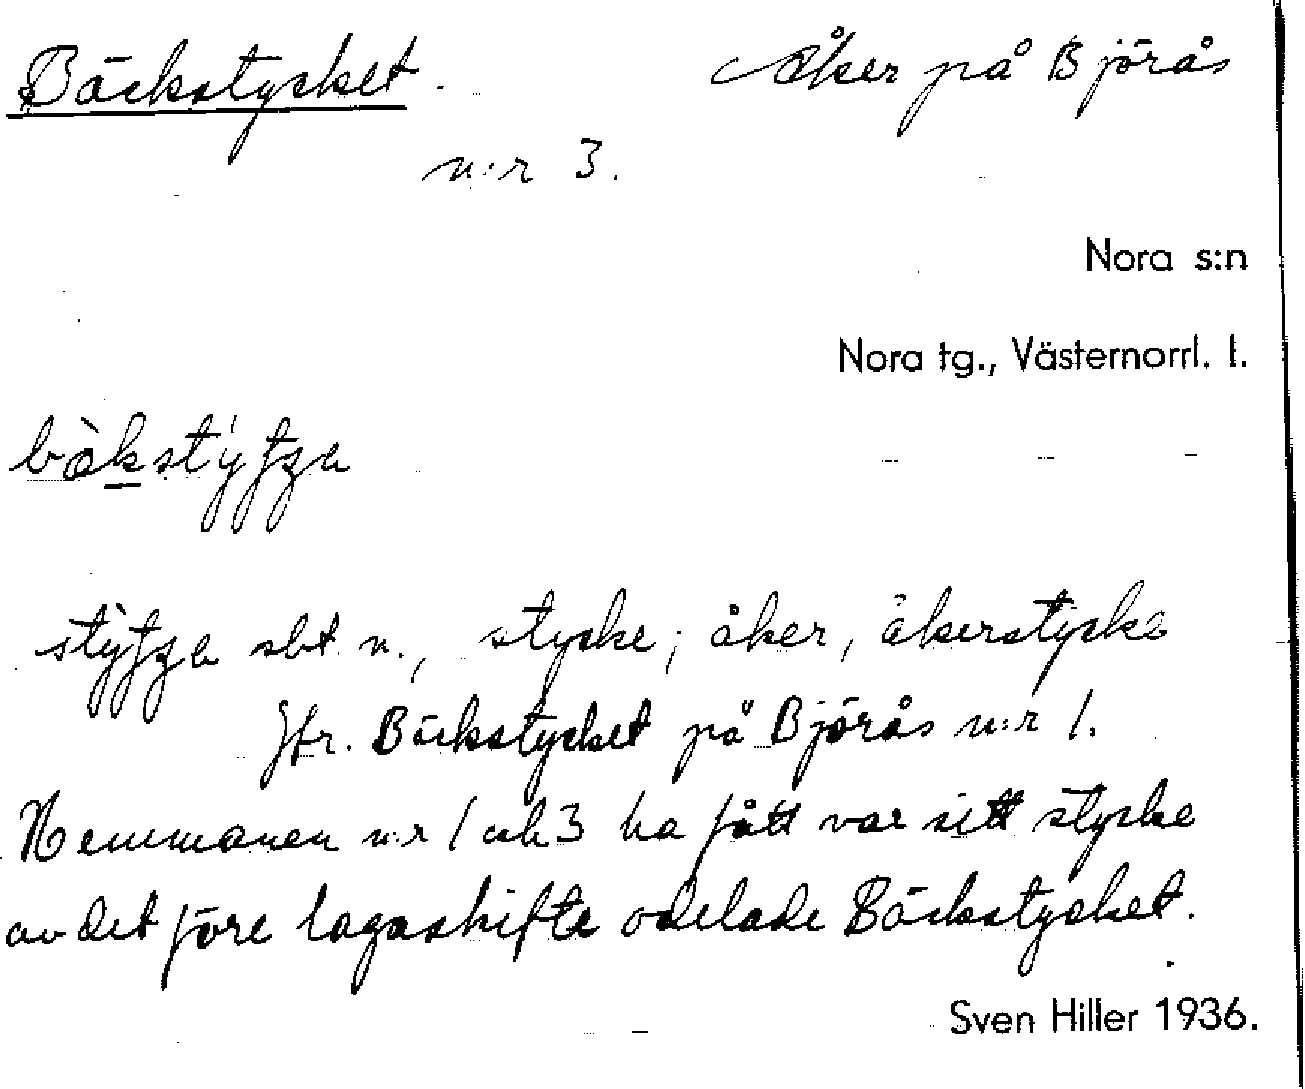 Bäckstycket. Åker på Björås
n:r 3.
Nora s:n
Nora tg., Västernorrl. l.
stycke; åker, åkerstycke
Jfr. Bäckstycket på Björås n:r 1.
Hemmanen n:r 1 och 3 ha fått var sitt stycke
av det före lagaskifte odelade Bäckstycket.
Sven Hiller 1936.